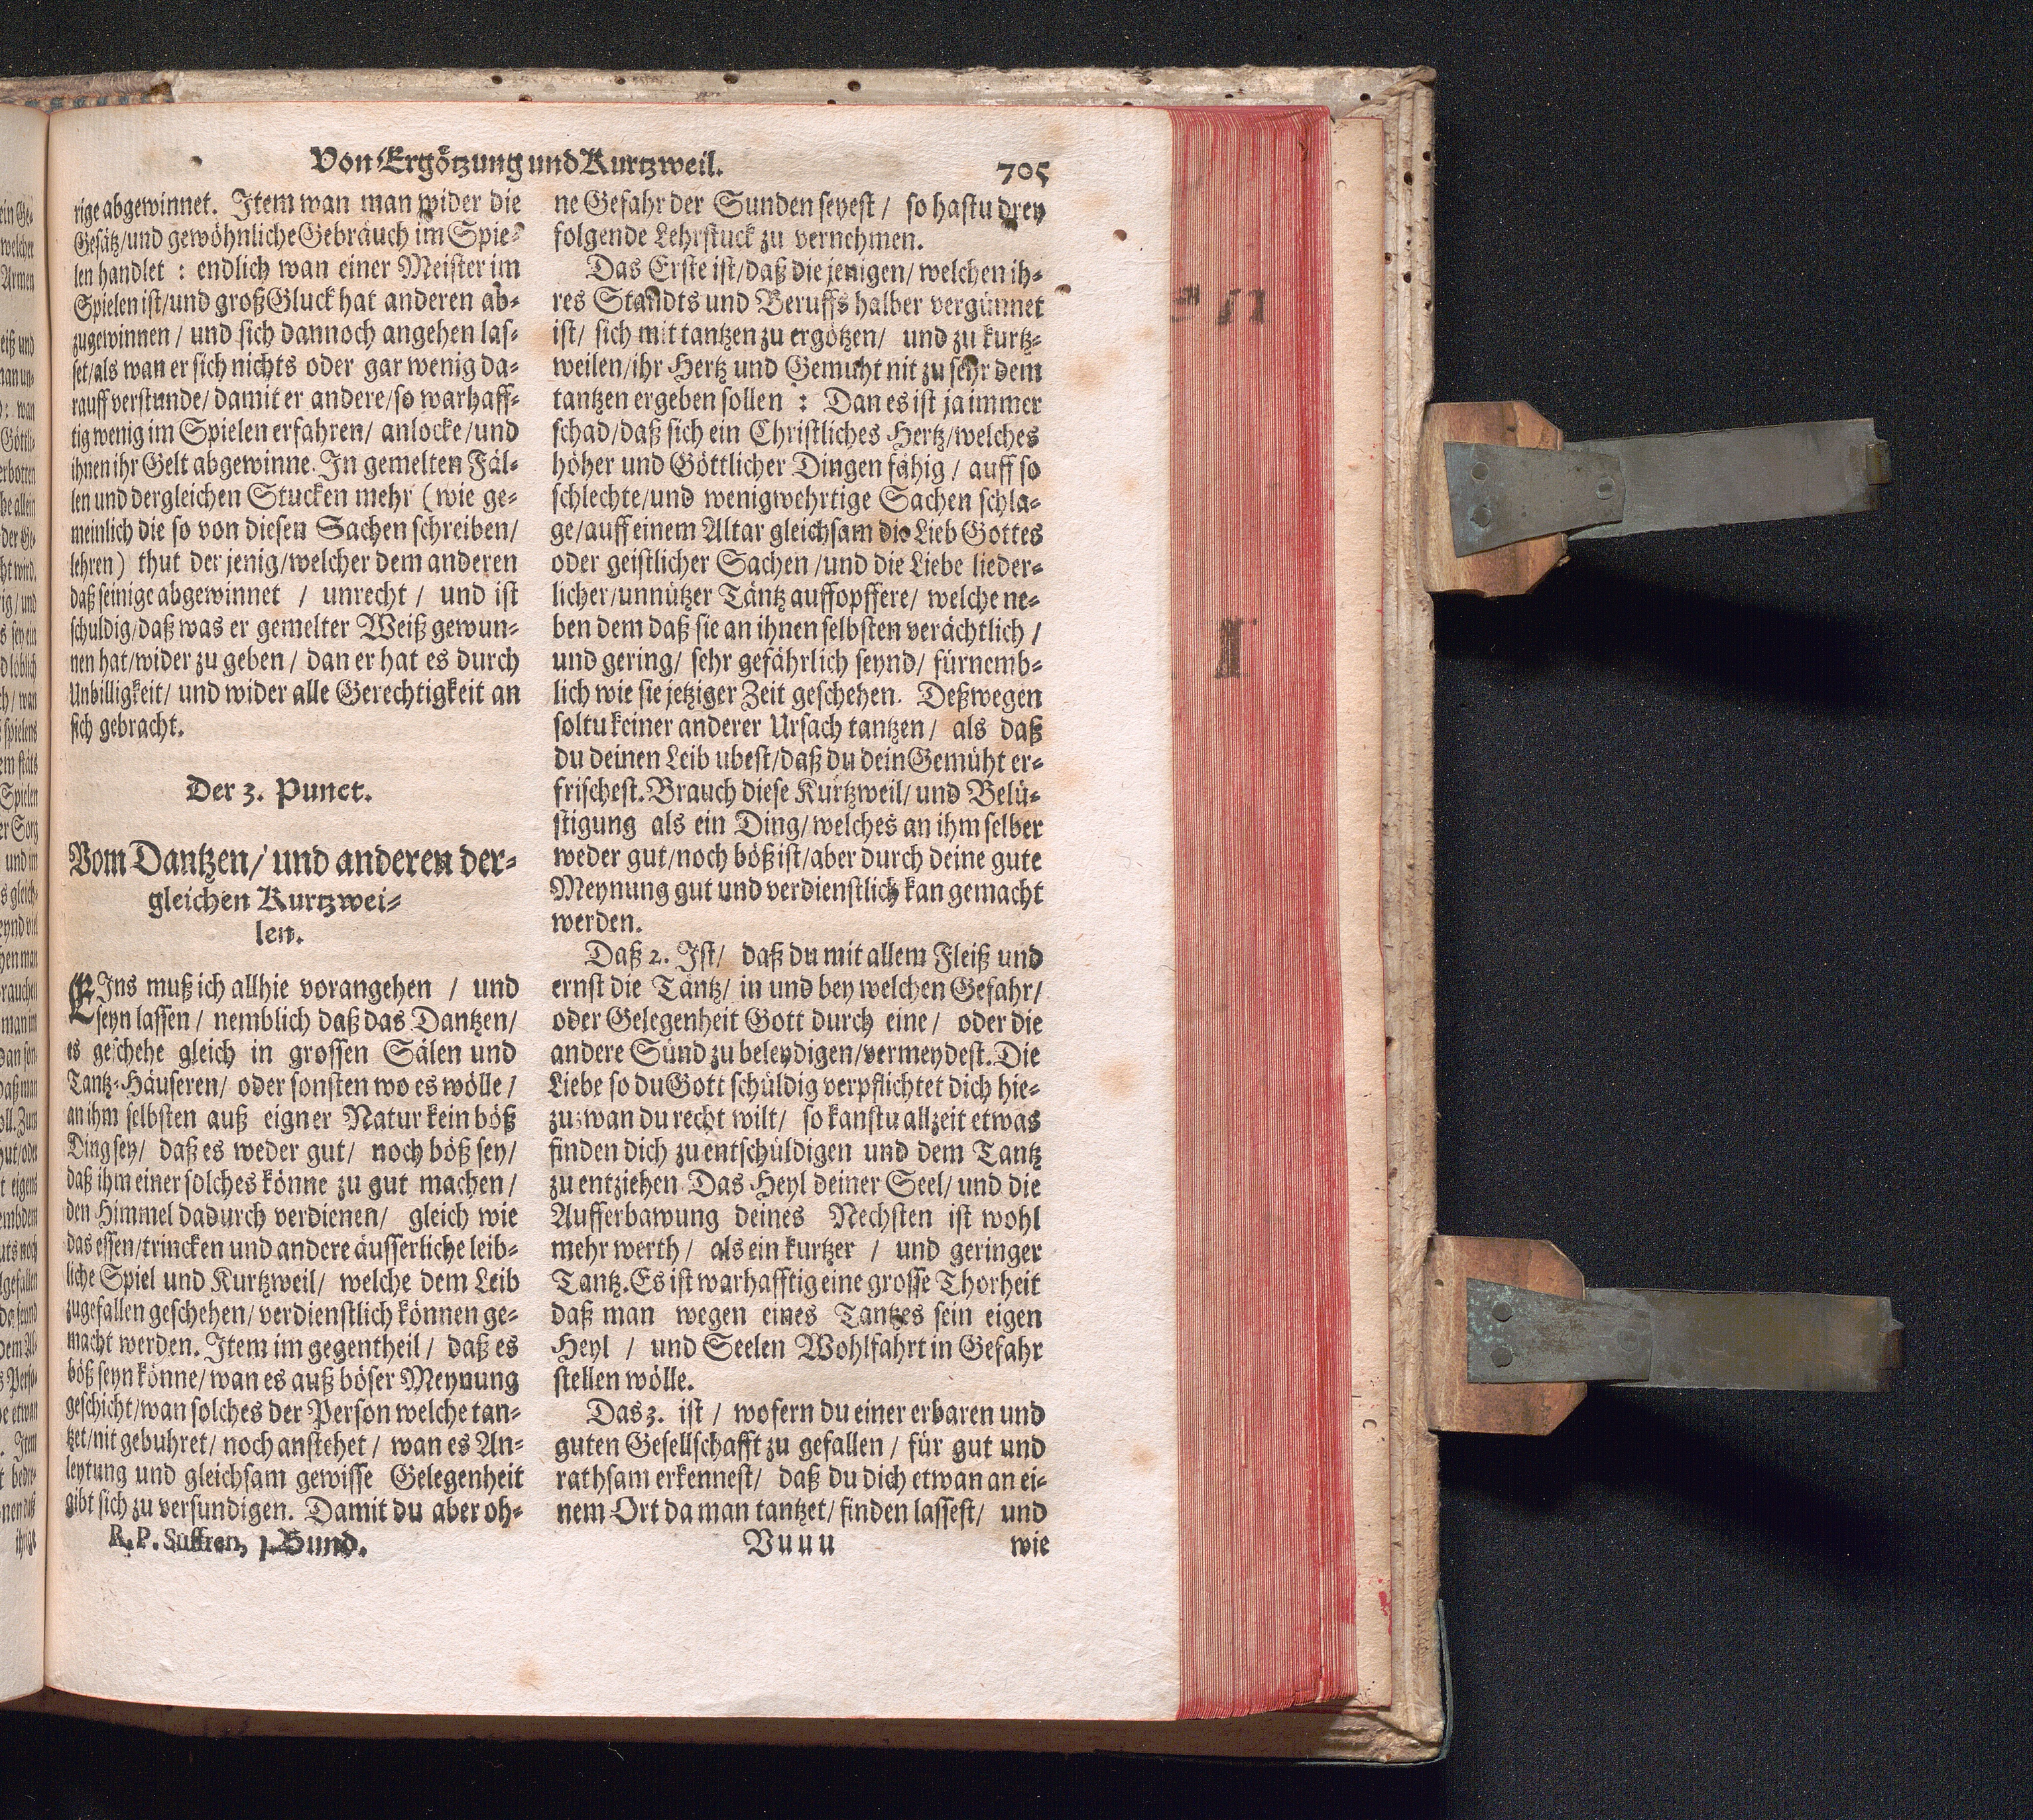 Von Ergötzung und Kurtzweil. 705
rige abgewinnet. Item wan man wider die
Gesätz/und gewöhnliche Gebräuch im Spie-
len handlet : endlich wan einer Meister im
Spielen ist/und groß Gluck hat anderen ab-
zugewinnen / und sich dannoch angehen las-
set/als wan er sich nichts oder gar wenig da-
rauff verstunde/ damit er andere/so warhaff-
tig wenig im Spielen erfahren/ anlocke/und
ihnen ihr Gelt abgewinne. In gemelten Fäl-
len und dergleichen Stucken mehr (wie ge-
meinlich die so von diesen Sachen schreiben/
lehren) thut der jenig/welcher dem anderen
daß seinige abgewinnet / unrecht / und ist
schuldig/daß was er gemelter Weiß gewun-
nen hat/wider zu geben / dan er hat es durch
Unbilligkeit/ und wider alle Gerechtigkeit an
sich gebracht.
Der 3. Punct.
Vom Dantzen/ und anderen der-
gleichen Kurtzwei-
len.
EIns muß ich allhie vorangehen / und
seyn lassen / nemblich daß das Dantzen/
es geschehe gleich in grossen Sälen und
Tantz-Häuseren/ oder sonsten wo es wölle /
an ihm selbsten auß eigner Natur kein böß
Ding sey/ daß es weder gut/ noch böß sey/
daß ihm einer solches könne zu gut machen /
den Himmel dadurch verdienen/ gleich wie
das essen/trincken und andere äusserliche leib-
liche Spiel und Kurtzweil/ welche dem Leib
zugefallen geschehen/ verdienstlich können ge-
macht werden. Item im gegentheil / daß es
böß seyn könne/ wan es auß böser Meynung
geschicht/wan solches der Person welche tan-
tzet/nit gebuhret/ noch anstehet / wan es An-
leytung und gleichsam gewisse Gelegenheit
gibt sich zu versundigen. Damit du aber oh-
R. P. Suffren, 1. Bund.
ne Gefahr der Sunden seyest / so hastu drey
folgende Lehrstuck zu vernehmen.
Das Erste ist/daß die jenigen/ welchen ih-
res Standts und Beruffs halber vergünnet
ist/ sich mit tantzen zu ergötzen/ und zu kurtz-
weilen/ihr Hertz und Gemuht nit zu sehr dem
tantzen ergeben sollen : Dan es ist ja immer
schad/daß sich ein Christliches Hertz/welches
höher und Göttlicher Dingen fähig / auff so
schlechte/und wenigwehrtige Sachen schla-
ge/auff einem Altar gleichsam die Lieb Gottes
oder geistlicher Sachen /und die Liebe lieder-
licher/unnützer Täntz auffopffere/ welche ne-
ben dem daß sie an ihnen selbsten verächtlich /
und gering/ sehr gefährlich seynd/ fürnemb-
lich wie sie jetziger Zeit geschehen. Deßwegen
soltu keiner anderer Ursach tantzen/ als daß
du deinen Leib ubest/daß du dein Gemüht er-
frischest. Brauch diese Kurtzweil/ und Belü-
stigung als ein Ding/welches an ihm selber
weder gut/noch böß ist/aber durch deine gute
Meynung gut und verdienstlich kan gemacht
werden.
Daß 2. Ist/ daß du mit allem Fleiß und
ernst die Täntz/ in und bey welchen Gefahr/
oder Gelegenheit Gott durch eine/ oder die
andere Sünd zu beleydigen/vermeydest. Die
Liebe so du Gott schüldig verpflichtet dich hie-
zu: wan du recht wilt/ so kanstu allzeit etwas
finden dich zu entschüldigen und dem Tantz
zu entziehen Das Heyl deiner Seel/ und die
Aufferbawung deines Nechsten ist wohl
mehr werth / als ein kurtzer / und geringer
Tantz. Es ist warhafftig eine grosse Thorheit
daß man wegen eines Tantzes sein eigen
Heyl / und Seelen Wohlfahrt in Gefahr
stellen wölle.
Das 3. ist / wofern du einer erbaren und
guten Gesellschafft zu gefallen / für gut und
rathsam erkennest/ daß du dich etwan an ei-
nem Ort da man tantzet/ finden lassest/ und
Vuuu wie